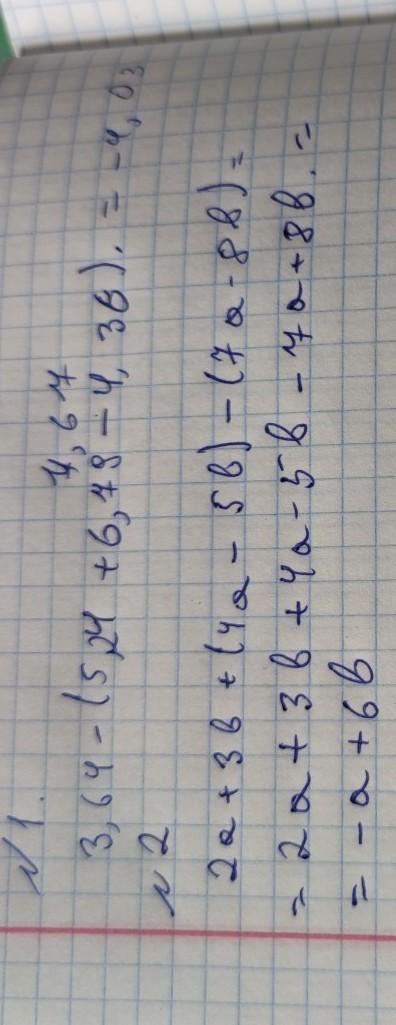 №1.
7,67
3,64-(5,24+6,78-4,36). = -4,03
№2
2a+3b+(4a-5b)-(7a-8b)=
=2a+3b+4a-5b-7a+8b.=
=-a+6b